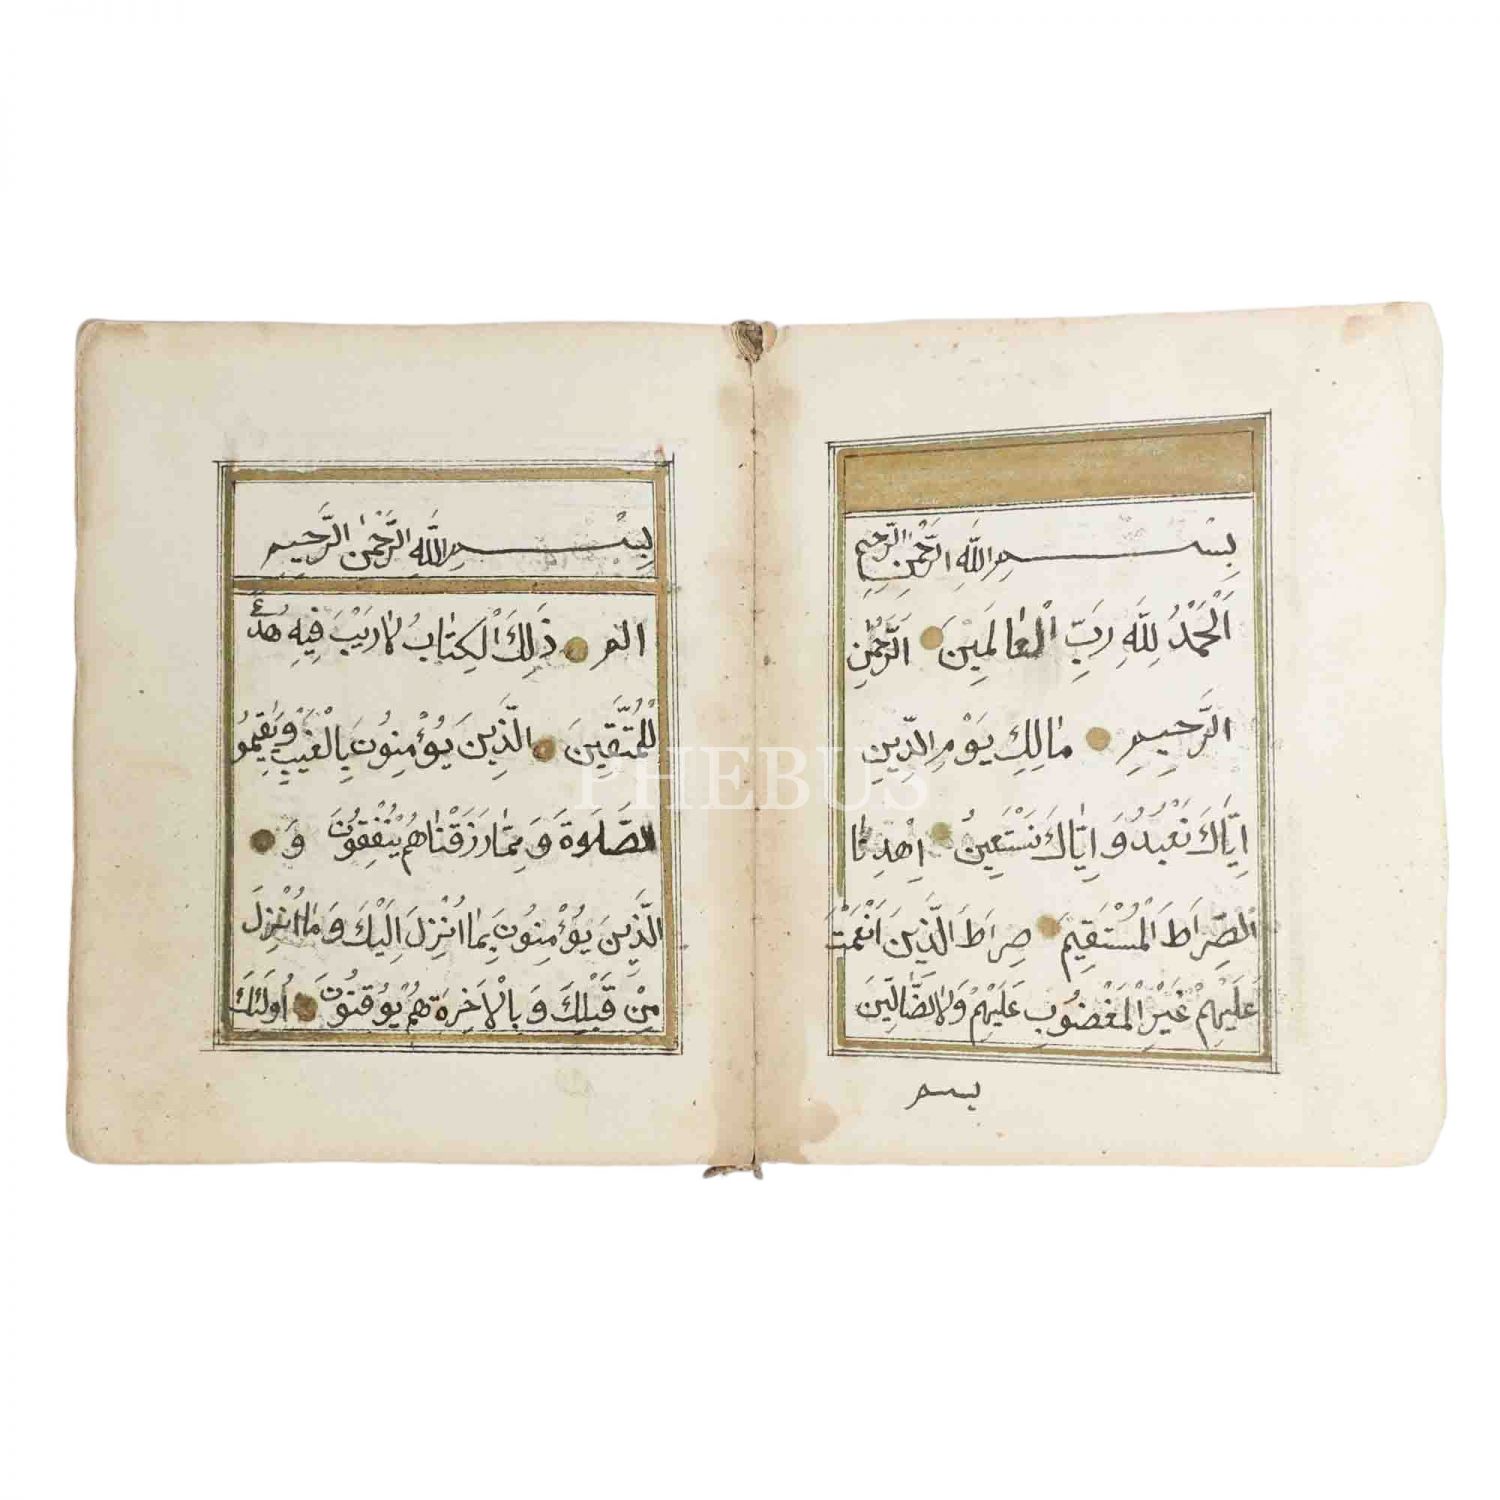 بِسْمِ اللَّهِ الرَّحْمٰنِ الرَّحِيمِ
اَلْحَمْدُ لِلَّهِ رَبِّ الْعَالَمِينَ الرَّحْمٰنِ
الرَّحِيمِ مَالِكِ يَوْمِ الدِّينِ
اِيَّاكَ نَعْبُدُ وَ اِيَّاكَ نَسْتَعِينُ اِهْدِنَا
الصِّرَاطَ الْمُسْتَقِيمَ صِرَاطَ الَّذِينَ اَنْعَمْتَ
عَلَيْهِمْ غَيْرِ الْمَغْضُوبِ عَلَيْهِمْ وَلَا الضَّالِّينَ
بسم
بِسْمِ اللَّهِ الرَّحْمٰنِ الرَّحِيمِ
الم ذٰلِكَ الْكِتَابُ لَا رَيْبَ فِيهِ هُدًى
لِلْمُتَّقِينَ الَّذِينَ يُؤْمِنُونَ بِالْغَيْبِ وَ يُقِيمُو
الصَّلَاوةَ وَ مِمَّا رَزَقْنَاهُمْ يُنْفِقُونَ وَ
الَّذِينَ يُؤْمِنُونَ بِمَا اُنْزِلَ اِلَيْكَ وَ مَا اُنْزِلَ
مِنْ قَبْلِكَ وَ بِالْاَخِرَةِ هُمْ يُوقِنُونَ اُولَئكَ
PHEBUS